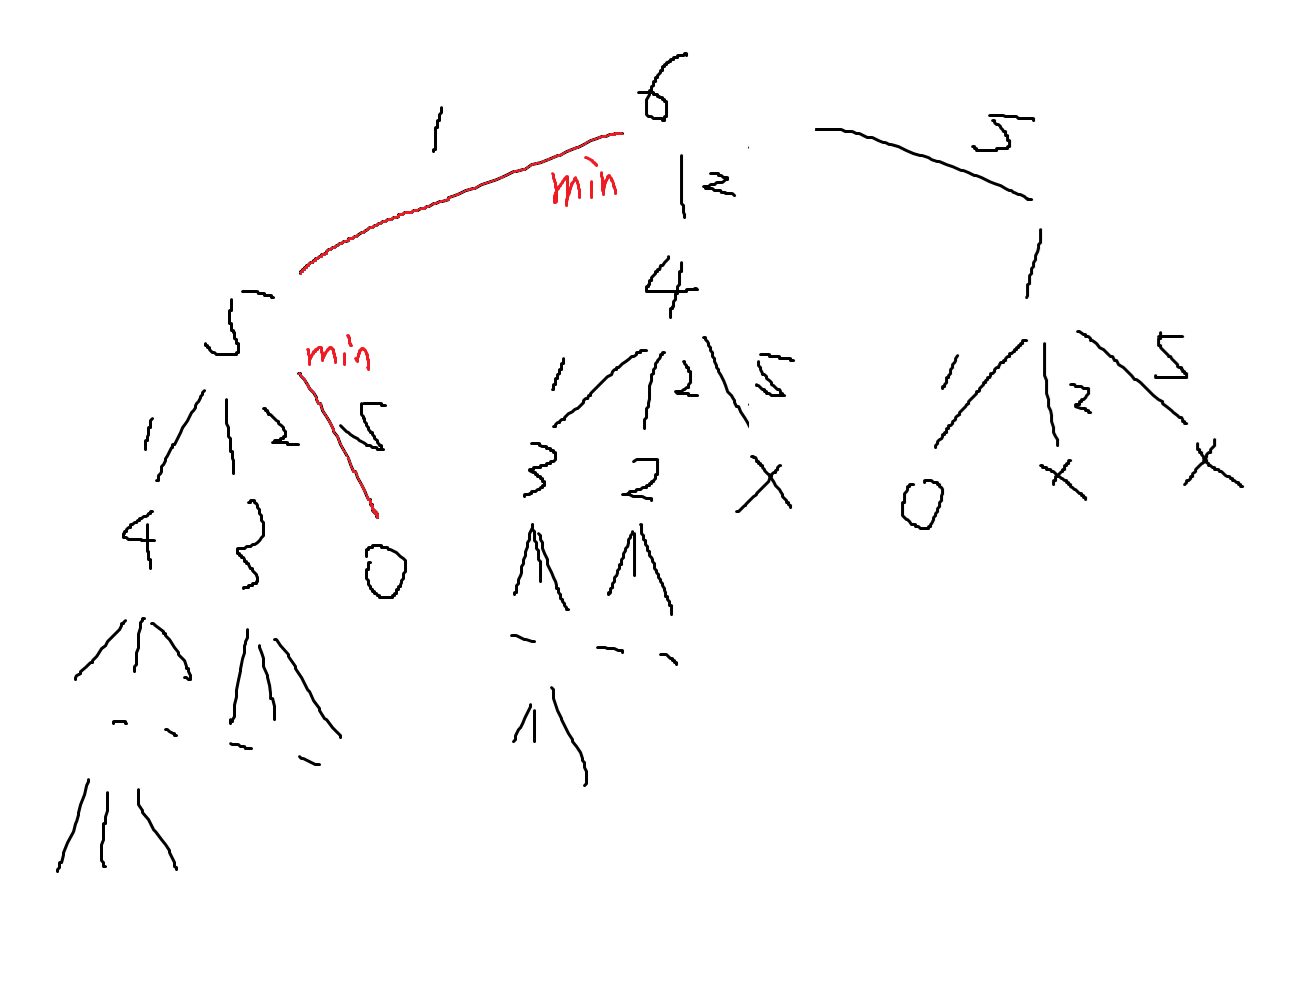 6
1 5
min 2
5 4 1
min
1 2 5 1 2 5 1 2 5
4 3 0 3 2 X 0 X X